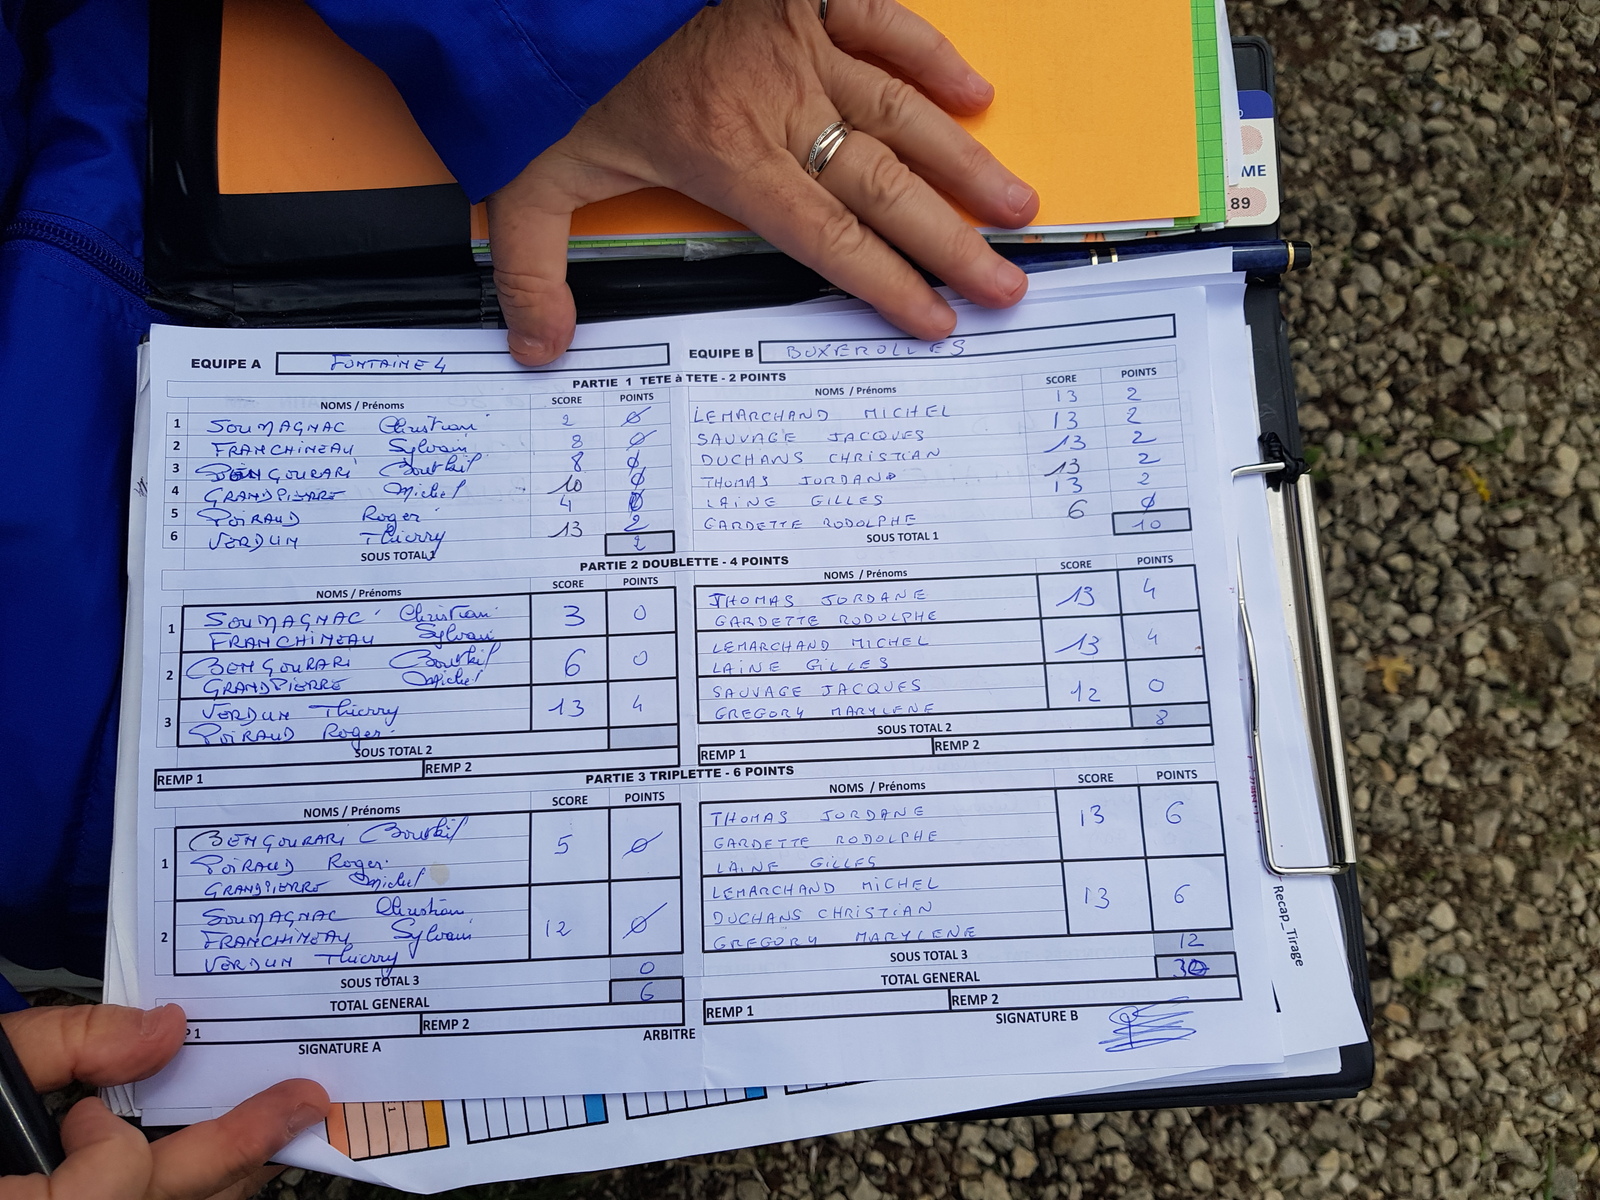 ME
89
EQUIPE A FONTAINE 4
EQUIPE B BUXEROLLES
PARTIE 1 TETE à TETE - 2 POINTS
NOMS / Prénoms SCORE POINTS
NOMS / Prénoms SCORE POINTS
1 SOUMAGNAC Christian 2 0
LEMARCHAND MICHEL 13 2
2 FRANCHINEAU Sylvain 8 0
SAUVAGE JACQUES 13 2
3 BENGOURARI Boutkil 8 0
DUCHANS CHRISTIAN 13 2
4 GRANDPIERRE Michel 10 0
THOMAS JORDANE 13 2
5 POIRAUD Roger 4 0
LAINE GILLES 13 2
6 VERDUN Thierry 13 2
GARDETTE RODOLPHE 6 0
SOUS TOTAL 1 2
SOUS TOTAL 1 10
PARTIE 2 DOUBLETTE - 4 POINTS
NOMS / Prénoms SCORE POINTS
NOMS / Prénoms SCORE POINTS
1 SOUMAGNAC Christian 3 0
FRANCHINEAU Sylvain
THOMAS JORDANE 13 4
GARDETTE RODOLPHE
2 BENGOURARI Boutkil 6 0
GRANDPIERRE Michel
LEMARCHAND MICHEL 13 4
LAINE GILLES
3 VERDUN Thierry 13 4
POIRAUD Roger
SAUVAGE JACQUES 12 0
GREGORY MARYLENE
SOUS TOTAL 2
SOUS TOTAL 2 8
REMP 1 REMP 2
REMP 1 REMP 2
PARTIE 3 TRIPLETTE - 6 POINTS
NOMS / Prénoms SCORE POINTS
NOMS / Prénoms SCORE POINTS
1 BENGOURARI Boutkil 5 0
POIRAUD Roger
GRANDPIERRE Michel
THOMAS JORDANE 13 6
GARDETTE RODOLPHE
LAINE GILLES
2 SOUMAGNAC Christian 12 0
FRANCHINEAU Sylvain
VERDUN Thierry
LEMARCHAND MICHEL 13 6
DUCHANS CHRISTIAN
GREGORY MARYLENE
SOUS TOTAL 3 0
SOUS TOTAL 3 12
TOTAL GENERAL 6
TOTAL GENERAL 30
P 1 REMP 2
REMP 1 REMP 2
SIGNATURE A
ARBITRE
SIGNATURE B
Recap_Tirage